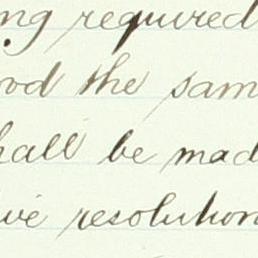 ng required
od the sam
hall be mad
ive resolution